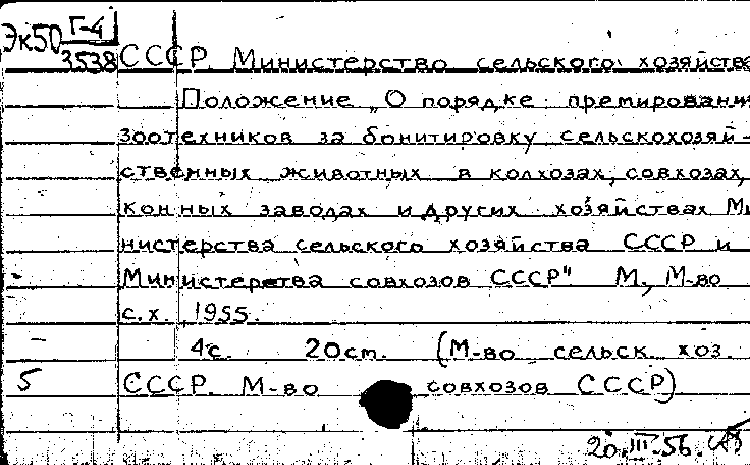 Эк50 Г-4
3538
СССР. Министерство сельского хозяйства
Положение „О порядке премирования
зоотехников за бонитировку сельскохозяй-
ственных животных в колхозах, совхозах,
конных заводах и других хозяйствах Ми-
нистерства сельского хозяйства СССР и
Министерства совхозов СССР" М., М-во
с.х., 1955.
4с. 20см. (М-во сельск. хоз.
5 СССР. М-во совхозов СССР)
20.III-56.